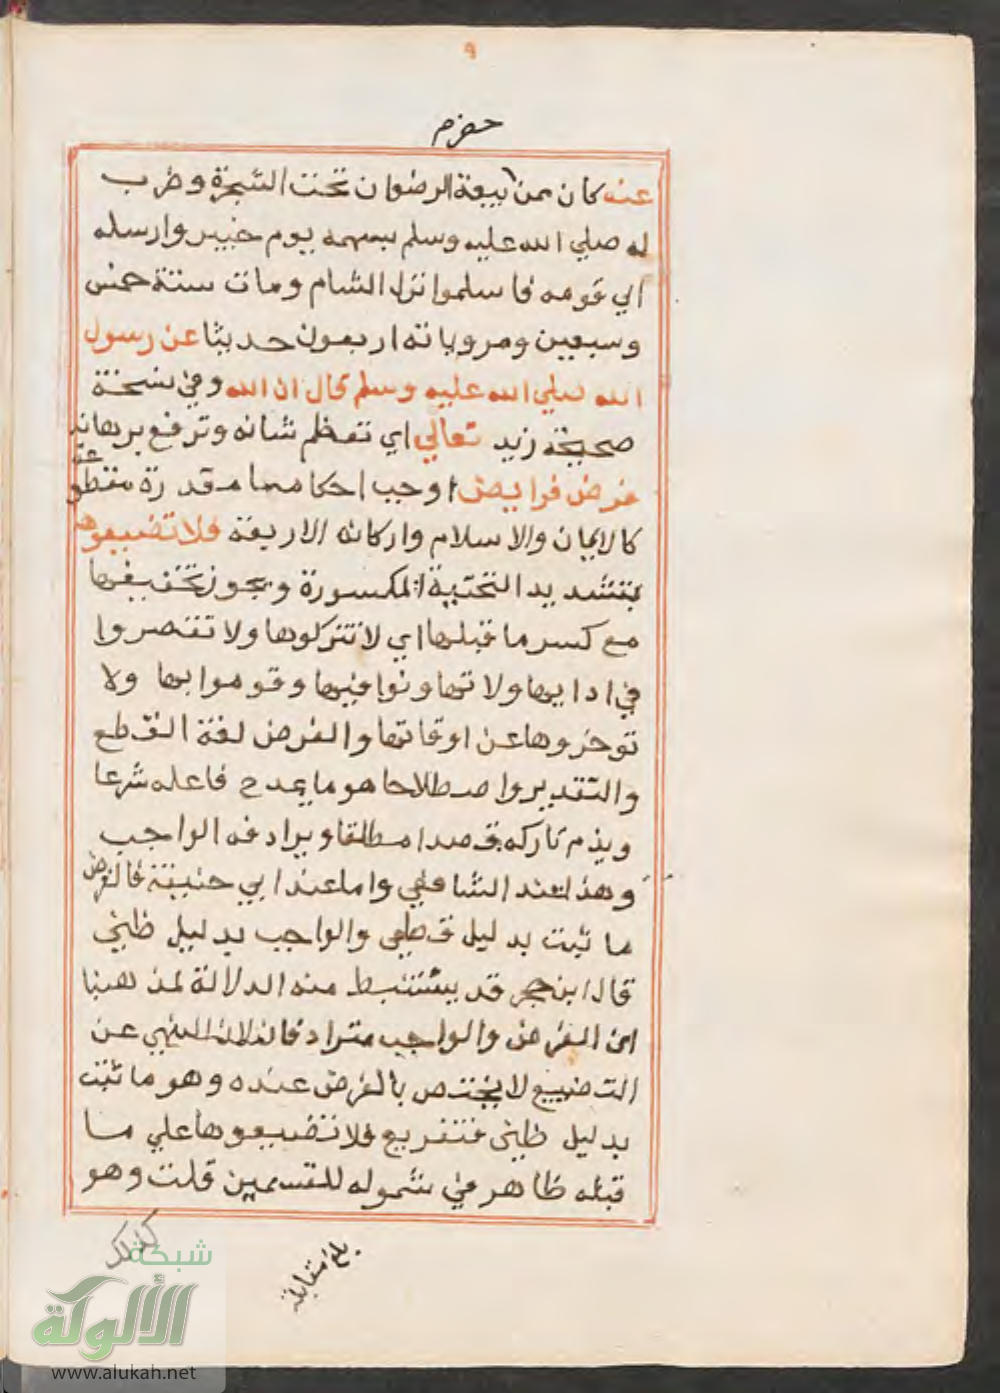 ٩
عنه كان ممن بيعة الرضوان تحت الشجرة وضرب
له صلي الله عليه وسلم بسهمه يوم خيبر وارسله
الي قومه فاسلموا نزل الشام ومات سنة خمس
وسبعين ومروياته اربعون حديثا عن رسول
الله صلي الله عليه وسلم قال ان الله وفي نسخة
صحيحة زيد تعالي اي تعظم شانه وترفع برهانه
فرض فرايض اوجب احكامها مقدرة مقطوعة
كالايمان والاسلام واركانه الاربعة فلا تضيعوها
بتشديد التحتية المكسورة ويجوز تخفيفها
مع كسر ما قبلها اي لا تتركوها ولا تقصروا
في ادايها ولا تهاونوا فيها وقوموا بها ولا
توخروها عن اوقاتها والفرض لغة القطع
والتقدير واصطلاحا هو ما يمدح فاعله شرعا
ويذم تاركه قصدا مطلقا ويرادفه الواجب
وهذا عند الشافعي واما عند ابي حنيفة فالفرض
ما ثبت بدليل قطعي والواجب بدليل ظني
قال ابن حجر قد يستنبط منه الدلالة لمذهبنا
ان الفرض والواجب مترادفان لان النهي عن
التضييع لا يختص بالفرض عنده وهو ما ثبت
بدليل ظني فتفريع فلا تضيعوها علي ما
قبله ظاهر في شموله للقسمين قلت وهو
بلغ مقابلة
شبكة
الألوكة
www.alukah.net